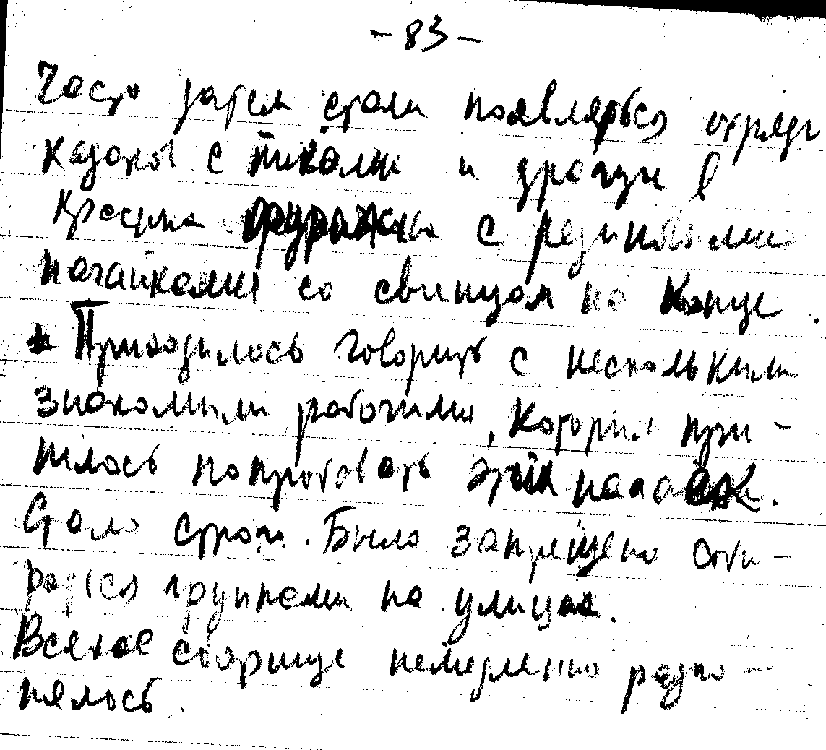 - 83 -
Часто затем стали появляться отряды
казаков с пиками и драгун в
красных фуражках с резиновыми
нагайками со свинцом на конце.
Приходилось говорить с несколькими
знакомыми рабочими, которым при-
шлось попробовать этих нагаек.
Стало строго. Было запрещено соби-
раться группами на улицах.
Всякое сборище немедленно разго-
нялось.